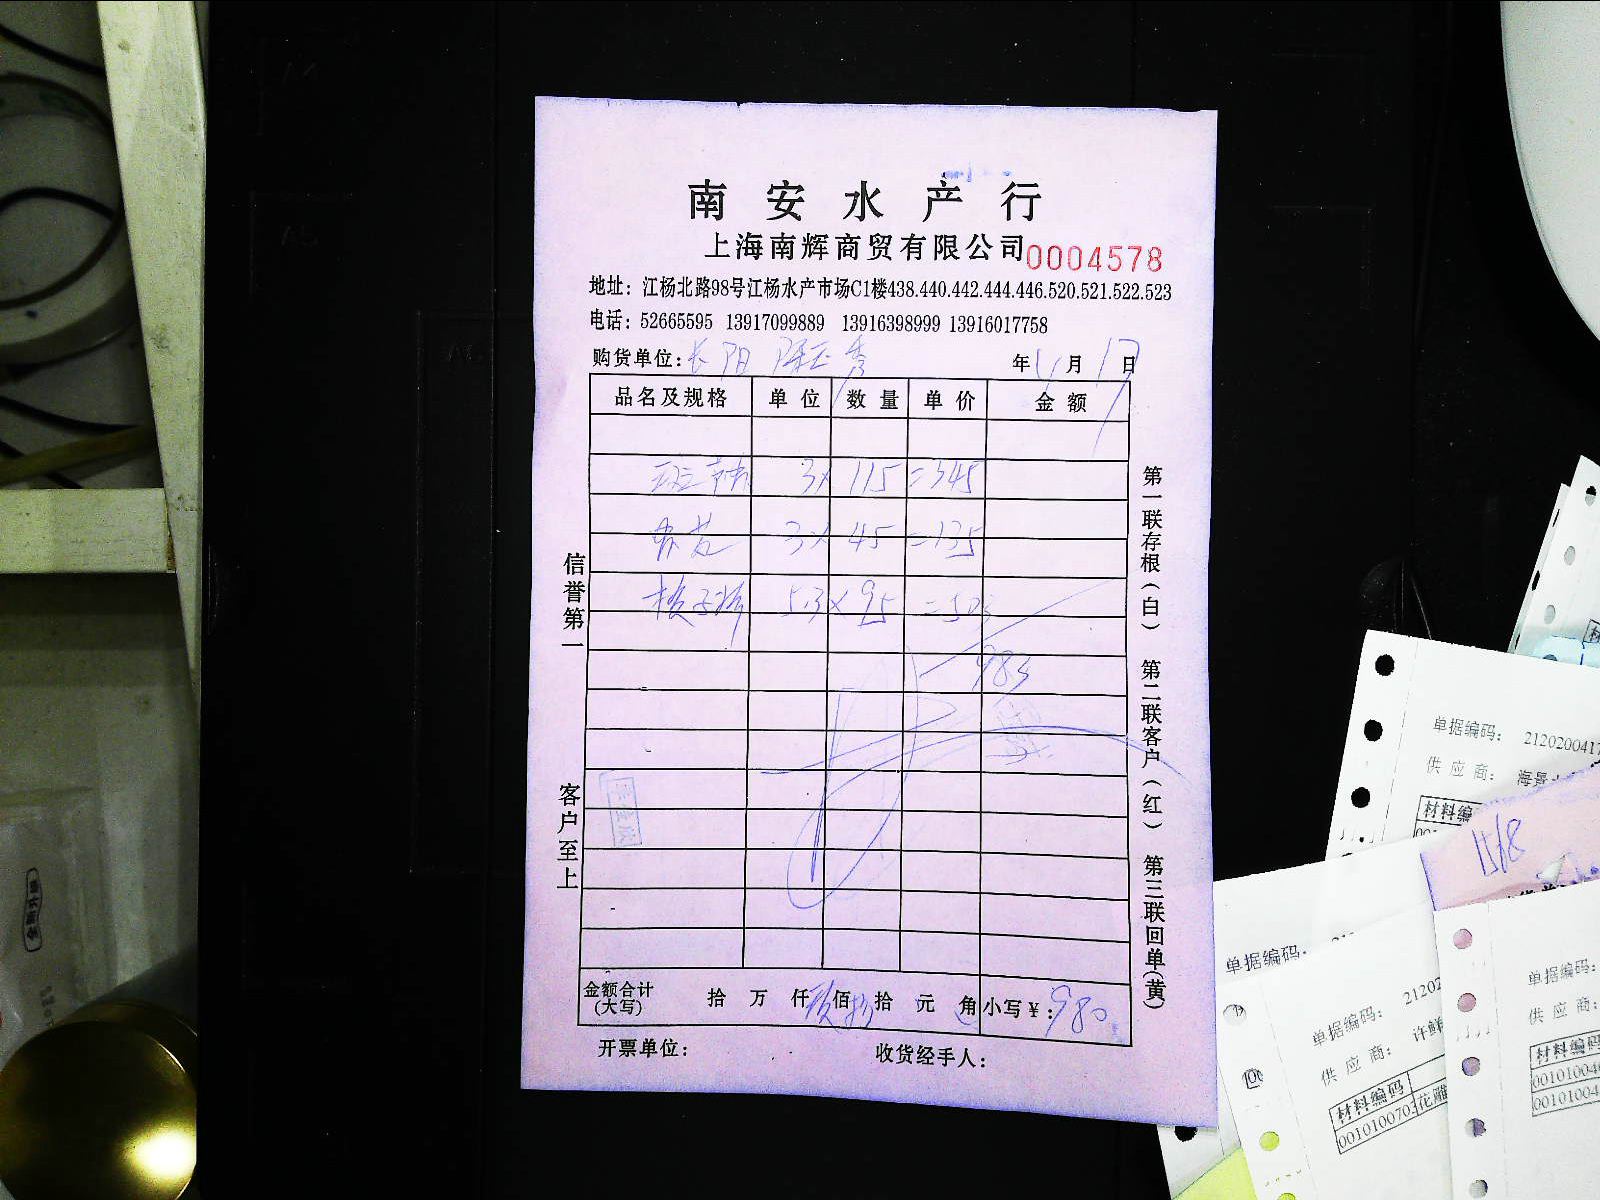 南安水产行
上海南辉商贸有限公司 0004578
地址：江杨北路98号江杨水产市场C1楼438.440.442.444.446.520.521.522.523
电话：52665595 13917099889 13916398999 13916017758
购货单位：长阳 年 月 17 日
品名及规格 单位 数量 单价 金额
班节 3× 115 =345
3× 45 =135
5.3× 95 =503
983
金额合计(大写) 拾 万 仟 玖 佰 捌 拾 元 角 小写￥：980
开票单位： 收货经手人：
信誉第一
客户至上
第一联存根(白) 第二联客户(红) 第三联回单(黄)
单据编码： 212020041
供应商： 海景
材料编
15/8
单据编码：
单据编码： 21202
供应商： 许鲜
材料编码
0010100703 花雕
单据编码：
供应商：
材料编码
00101004
00101004